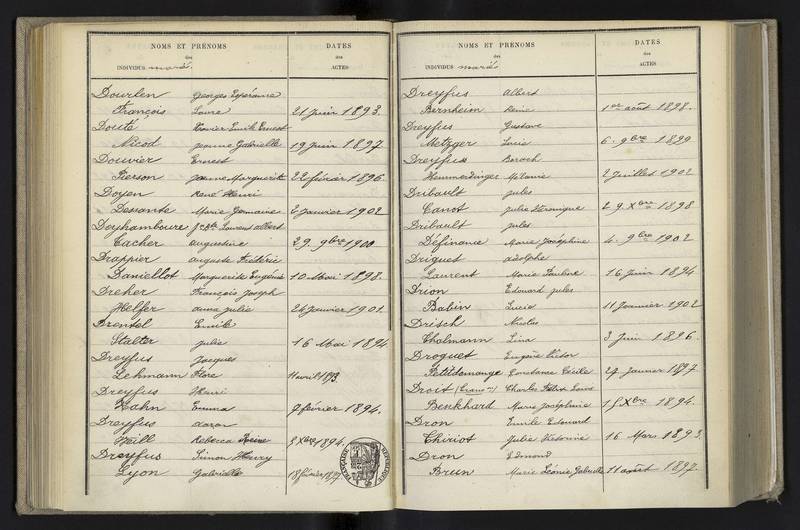 NOMS ET PRÉNOMS
des
INDIVIDUS mariés.
DATES
des
ACTES
Dourlen Georges Espérance
François Laure 21 Juin 1893.
Douté Xavier Emile Ernest
Nicod Jeanne Gabrielle 19 Juin 1897
Douvier Ernest
Pierson Jeanne Marguerite 22 février 1896
Doyen René Henri
Dessante Marie Germaine 2 Janvier 1902
Deychamboure Laurent Albert
Cacher Augustine 29. 9bre 1900
Drappier Auguste Frédéric
Daniellot Marguerite Eugénie 10 Mai 1898.
Dreher François Joseph
Helfer Anna Julie 24 Janvier 1901.
Brentel Emile
Stalter Julie 16 Mai 1894
Dreyfus Jacques
Lehmann Flore 11 avril 1893.
Dreyfus Henri
Cahn Emma 9 février 1894.
Dreyfus Aaron
Weill Rebecca Reine Xbre 1894.
Dreyfus Simon Henry
Lyon Gabrielle 18 février 1897
RÉPUBLIQUE FRANÇAISE
NOMS ET PRÉNOMS
des
INDIVIDUS mariés
DATES
des
ACTES
Dreyfus Albert
Bernheim Reine 1er août 1898.
Dreyfus Gustave
Metzger Lucie 6. 9bre 1899
Dreyfus Baroch
Hemmendinger Mélanie 2 Juillet 1902
Dribault Jules
Canot Julie Véronique 29. Xbre 1898
Dribault Jules
Définance Marie Joséphine 4. 9bre 1902
Driguet Adolphe
Laurent Marie Pauline 16 Juin 1894
Drion Edouard Jules
Babin Lucie 11 Janvier 1902
Drisch Nicolas
Tholmann Lina 3 Juin 1896.
Droguet Eugène Victor
Petitdemange Constance Cécile 27 Janvier 1897
Droit Charles Félix Louis
Benkhard Marie Joséphine Xbre 1894.
Dron Emile Edouard
Thiriot Julie Victorine 16 Mars 1893.
Dron Edmond
Brun Marie Léonie Gabrielle 11 août 1897.